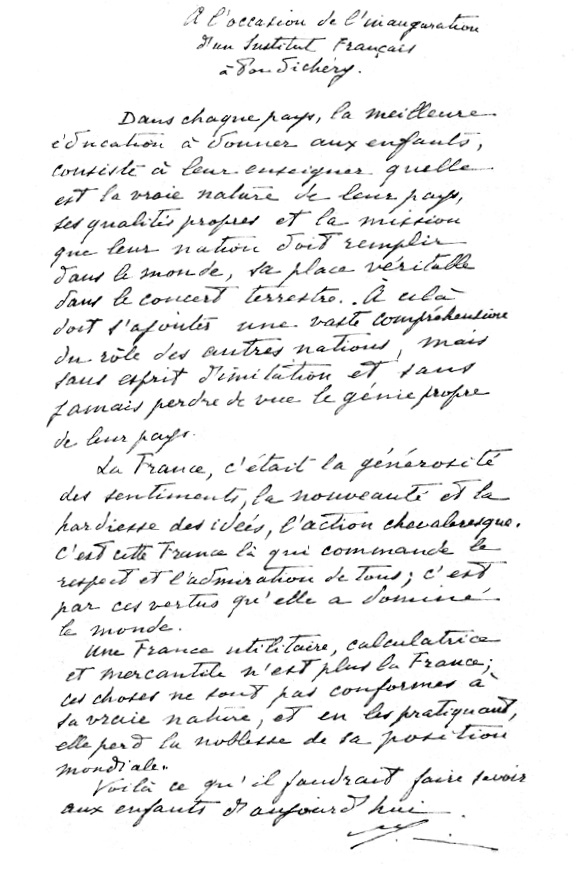 A l'occasion de l'inauguration
d'un Institut Français
à Pondichéry.
Dans chaque pays, la meilleure
éducation à donner aux enfants,
consiste à leur enseigner quelle
est la vraie nature de leur pays,
ses qualités propres et la mission
que leur nation doit remplir
dans le monde, sa place véritable
dans le concert terrestre. À cela
doit s'ajouter une vaste compréhension
du rôle des autres nations, mais
sans esprit d'imitation et sans
jamais perdre de vue le génie propre
de leur pays.
La France, c'était la générosité
des sentiments, la nouveauté et la
hardiesse des idées, l'action chevaleresque.
C'est cette France là qui commande le
respect et l'admiration de tous; c'est
par ces vertus qu'elle a dominé
le monde.
Une France utilitaire, calculatrice
et mercantile n'est plus la France;
ces choses ne sont pas conformes à
sa vraie nature, et en les pratiquant,
elle perd la noblesse de sa position
mondiale.
Voilà ce qu'il faudrait faire savoir
aux enfants d'aujourd'hui.